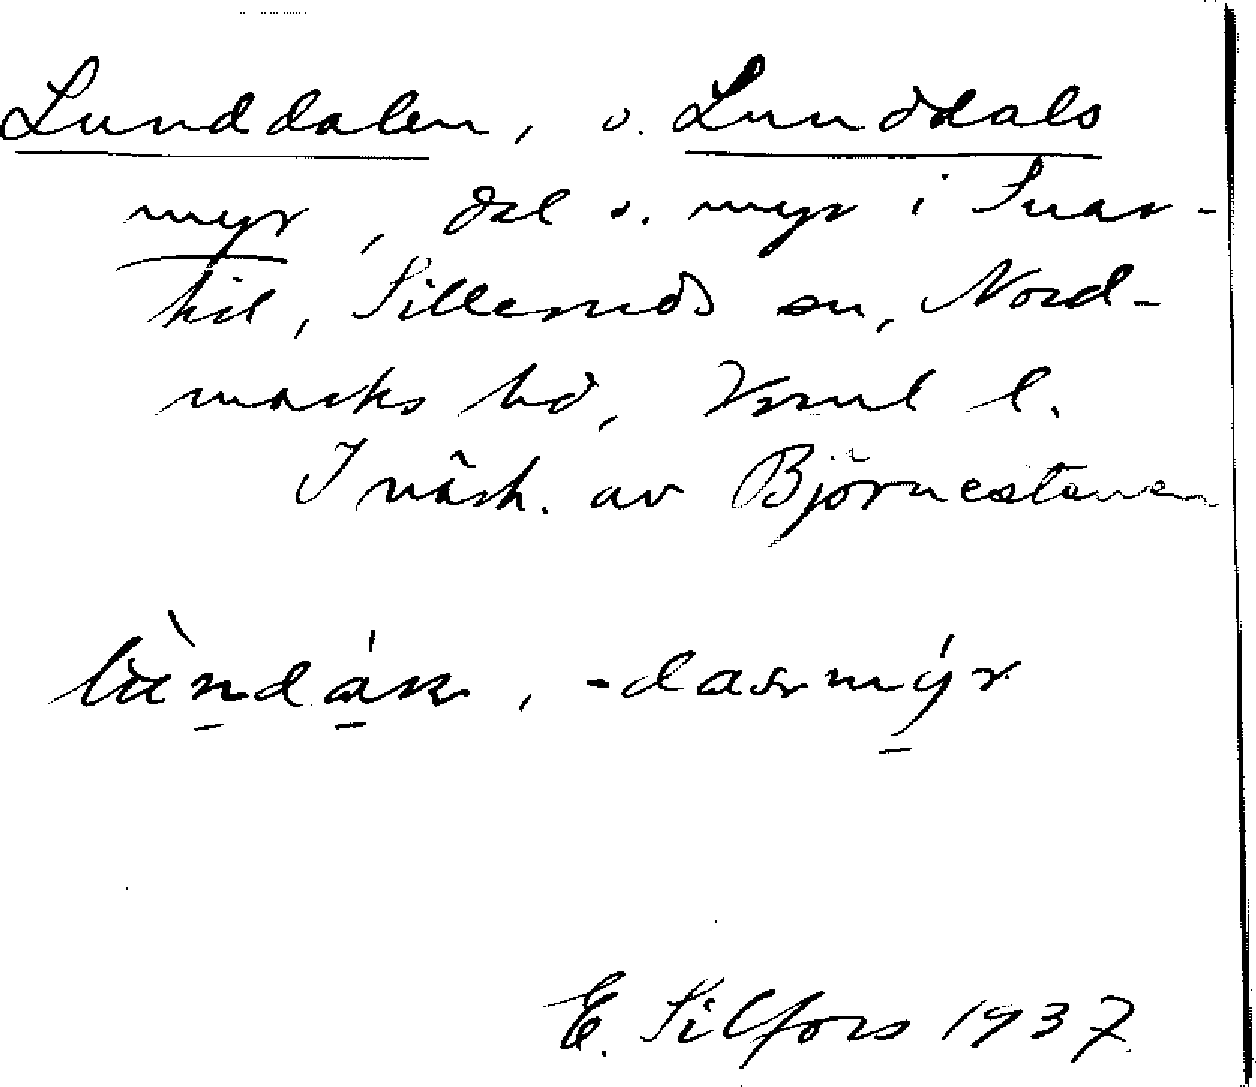 Lunddalen, o. Lunddals
myr, dal o. myr i Snar-
kil, Silleruds sn, Nord-
marks hd, Vrml l.
I närh. av Björnestenen
E. Silfors 1937